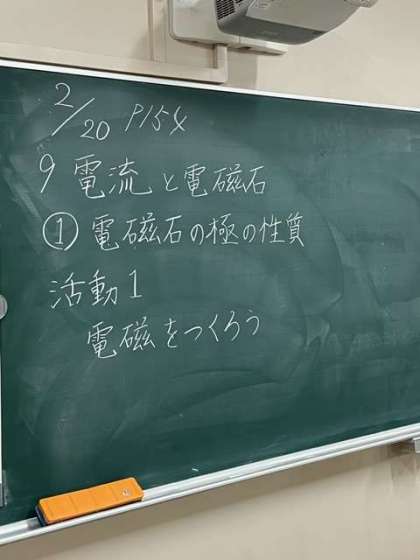 2/20 P154
9 電流と電磁石
① 電磁石の極の性質
活動1
電磁をつくろう